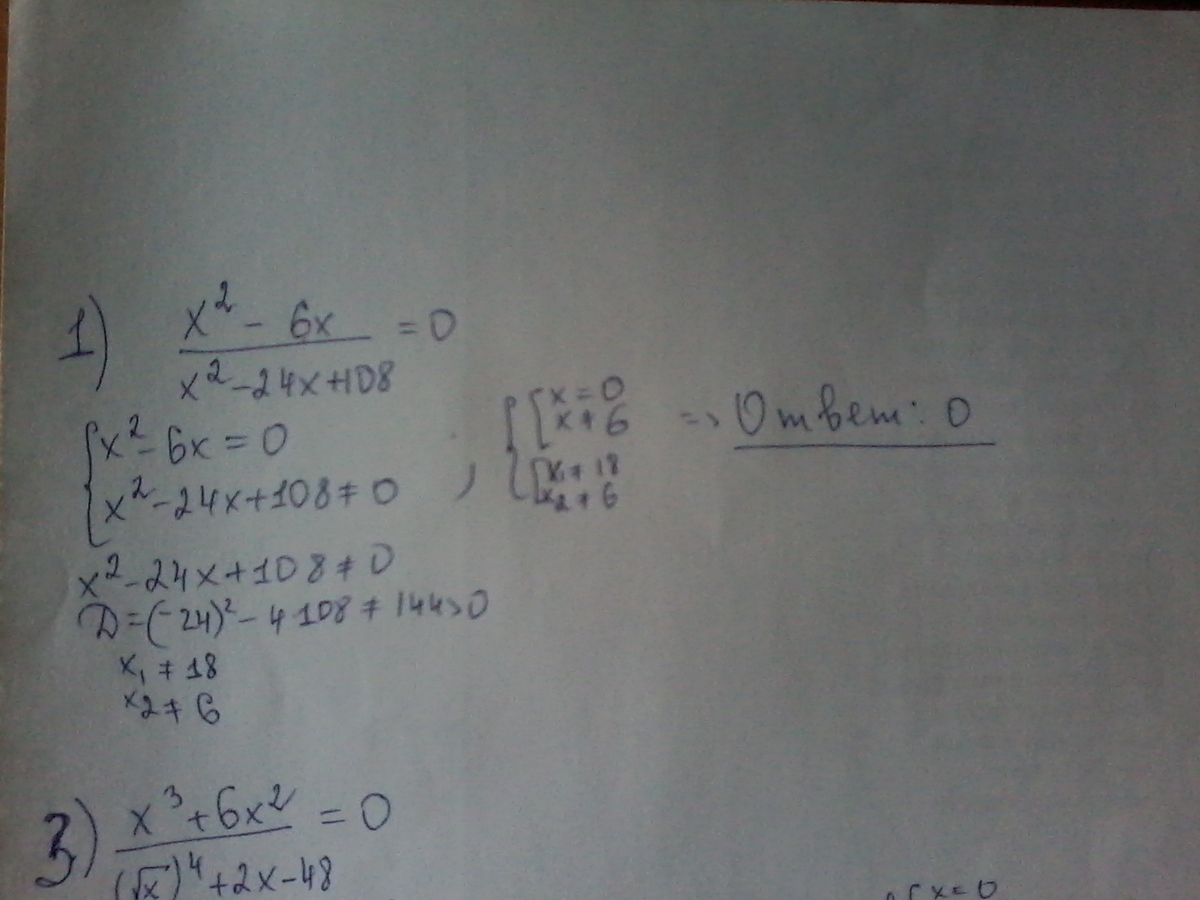 1) x² - 6x / x² - 24x + 108 = 0
{ x² - 6x = 0
x² - 24x + 108 ≠ 0
, { [ x = 0
x ≠ 6
[ x₁ ≠ 18
x₂ ≠ 6
=> Ответ: 0
x² - 24x + 108 ≠ 0
D = (-24)² - 4·108 ≠ 144 > 0
x₁ ≠ 18
x₂ ≠ 6
3) x³ + 6x² / (√x)⁴ + 2x - 48 = 0
x = 0